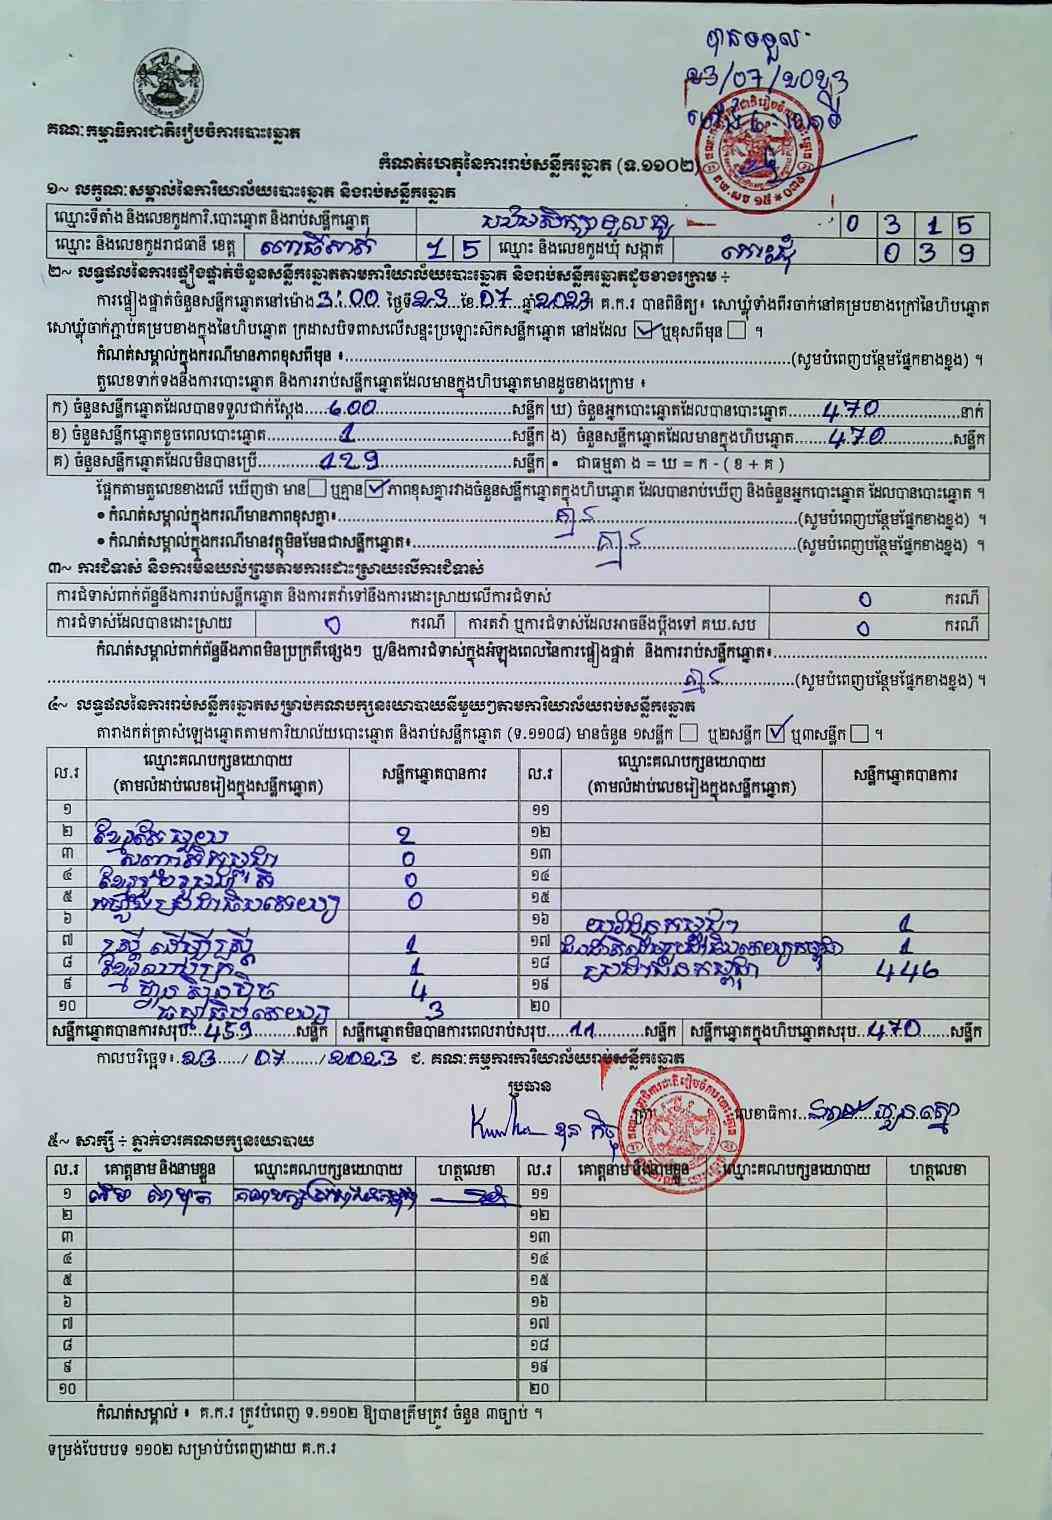 បានទទួល
23/07/2023
គណៈកម្មាធិការជាតិរៀបចំការបោះឆ្នោត
កំណត់ហេតុនៃការរាប់សន្លឹកឆ្នោត (ទ.១១០២)
១~ លក្ខណៈសម្គាល់នៃការិយាល័យបោះឆ្នោត និងរាប់សន្លឹកឆ្នោត
ឈ្មោះទីតាំង និងលេខកូដការិ.បោះឆ្នោត និងរាប់សន្លឹកឆ្នោត 0 3 1 5
ឈ្មោះ និងលេខកូដរាជធានី ខេត្ត ពោធិ៍សាត់ 1 5 ឈ្មោះ និងលេខកូដឃុំ សង្កាត់ 0 3 9
២~ លទ្ធផលនៃការផ្ទៀងផ្ទាត់ចំនួនសន្លឹកឆ្នោតតាមការិយាល័យបោះឆ្នោត និងរាប់សន្លឹកឆ្នោតដូចខាងក្រោម ÷
ការផ្ទៀងផ្ទាត់ចំនួនសន្លឹកឆ្នោតនៅម៉ោង 3:00 ថ្ងៃទី 23 ខែ 07 ឆ្នាំ 2023 គ.ក.រ បានពិនិត្យ៖ សោឃ្លុំទាំងពីរចាក់នៅគម្របខាងក្រៅនៃហិបឆ្នោត
សោឃ្លុំចាក់ភ្ជាប់គម្របខាងក្នុងនៃហិបឆ្នោត ក្រដាសបិទពាសលើសន្ទះប្រឡោះស៊ីកសន្លឹកឆ្នោត នៅដដែល ☑ ឬខុសពីមុន ☐ ។
កំណត់សម្គាល់ក្នុងករណីមានភាពខុសពីមុន ៖ (សូមបំពេញបន្ថែមផ្នែកខាងខ្នង) ។
តួលេខទាក់ទងនឹងការបោះឆ្នោត និងការរាប់សន្លឹកឆ្នោតដែលមានក្នុងហិបឆ្នោតមានដូចខាងក្រោម ៖
ក) ចំនួនសន្លឹកឆ្នោតដែលបានទទួលជាក់ស្តែង 600 សន្លឹក ឃ) ចំនួនអ្នកបោះឆ្នោតដែលបានបោះឆ្នោត 470 នាក់
ខ) ចំនួនសន្លឹកឆ្នោតខូចពេលបោះឆ្នោត 1 សន្លឹក ង) ចំនួនសន្លឹកឆ្នោតដែលមានក្នុងហិបឆ្នោត 470 សន្លឹក
គ) ចំនួនសន្លឹកឆ្នោតដែលមិនបានប្រើ 129 សន្លឹក • ជាធម្មតា ង = ឃ = ក - ( ខ + គ )
ផ្អែកតាមតួលេខខាងលើ ឃើញថា មាន ☐ ឬគ្មាន ☑ ភាពខុសគ្នារវាងចំនួនសន្លឹកឆ្នោតក្នុងហិបឆ្នោត ដែលបានរាប់ឃើញ និងចំនួនអ្នកបោះឆ្នោត ដែលបានបោះឆ្នោត ។
• កំណត់សម្គាល់ក្នុងករណីមានភាពខុសគ្នា៖ គ្មាន (សូមបំពេញបន្ថែមផ្នែកខាងខ្នង) ។
• កំណត់សម្គាល់ក្នុងករណីមានវត្ថុមិនមែនជាសន្លឹកឆ្នោត៖ គ្មាន (សូមបំពេញបន្ថែមផ្នែកខាងខ្នង) ។
៣~ ការជំទាស់ និងការមិនយល់ព្រមតាមការដោះស្រាយលើការជំទាស់
ការជំទាស់ពាក់ព័ន្ធនឹងការរាប់សន្លឹកឆ្នោត និងការតវ៉ាទៅនឹងការដោះស្រាយលើការជំទាស់ 0 ករណី
ការជំទាស់ដែលបានដោះស្រាយ 0 ករណី ការតវ៉ា ឬការជំទាស់ដែលអាចនឹងប្តឹងទៅ គឃ.សប 0 ករណី
កំណត់សម្គាល់ពាក់ព័ន្ធនឹងភាពមិនប្រក្រតីផ្សេងៗ ឬ/និងការជំទាស់ក្នុងអំឡុងពេលនៃការផ្ទៀងផ្ទាត់ និងការរាប់សន្លឹកឆ្នោត៖
គ្មាន (សូមបំពេញបន្ថែមផ្នែកខាងខ្នង) ។
៤~ លទ្ធផលនៃការរាប់សន្លឹកឆ្នោតសម្រាប់គណបក្សនយោបាយនីមួយៗតាមការិយាល័យរាប់សន្លឹកឆ្នោត
តារាងកត់ត្រាសំឡេងឆ្នោតតាមការិយាល័យបោះឆ្នោត និងរាប់សន្លឹកឆ្នោត (ទ.១១០៨) មានចំនួន ១សន្លឹក ☐ ឬ២សន្លឹក ☑ ឬ៣សន្លឹក ☐ ។
ល.រ ឈ្មោះគណបក្សនយោបាយ (តាមលំដាប់លេខរៀងក្នុងសន្លឹកឆ្នោត) សន្លឹកឆ្នោតបានការ ល.រ ឈ្មោះគណបក្សនយោបាយ (តាមលំដាប់លេខរៀងក្នុងសន្លឹកឆ្នោត) សន្លឹកឆ្នោតបានការ
១ ១១
២ ខ្មែរតែមួយ 2 ១២
៣ 0 ១៣
៤ 0 ១៤
៥ 0 ១៥
៦ ១៦ 1
៧ ស្ត្រីដើម្បីស្ត្រី 1 ១៧ 1
៨ 1 ១៨ ប្រជាជនកម្ពុជា 446
៩ 4 ១៩
១០ 3 ២០
សន្លឹកឆ្នោតបានការសរុប 459 សន្លឹក សន្លឹកឆ្នោតមិនបានការពេលរាប់សរុប 11 សន្លឹក សន្លឹកឆ្នោតក្នុងហិបឆ្នោតសរុប 470 សន្លឹក
កាលបរិច្ឆេទ៖ 23 / 07 / 2023 ជ. គណៈកម្មការការិយាល័យរាប់សន្លឹកឆ្នោត
ប្រធាន
លេខាធិការ
៥~ សាក្សី ÷ ភ្នាក់ងារគណបក្សនយោបាយ
ល.រ គោត្តនាម និងនាមខ្លួន ឈ្មោះគណបក្សនយោបាយ ហត្ថលេខា ល.រ គោត្តនាម និងនាមខ្លួន ឈ្មោះគណបក្សនយោបាយ ហត្ថលេខា
១ គណបក្សប្រជាជនកម្ពុជា ១១
២ ១២
៣ ១៣
៤ ១៤
៥ ១៥
៦ ១៦
៧ ១៧
៨ ១៨
៩ ១៩
១០ ២០
កំណត់សម្គាល់ ៖ គ.ក.រ ត្រូវបំពេញ ទ.១១០២ ឱ្យបានត្រឹមត្រូវ ចំនួន ៣ច្បាប់ ។
ទម្រង់បែបបទ ១១០២ សម្រាប់បំពេញដោយ គ.ក.រ